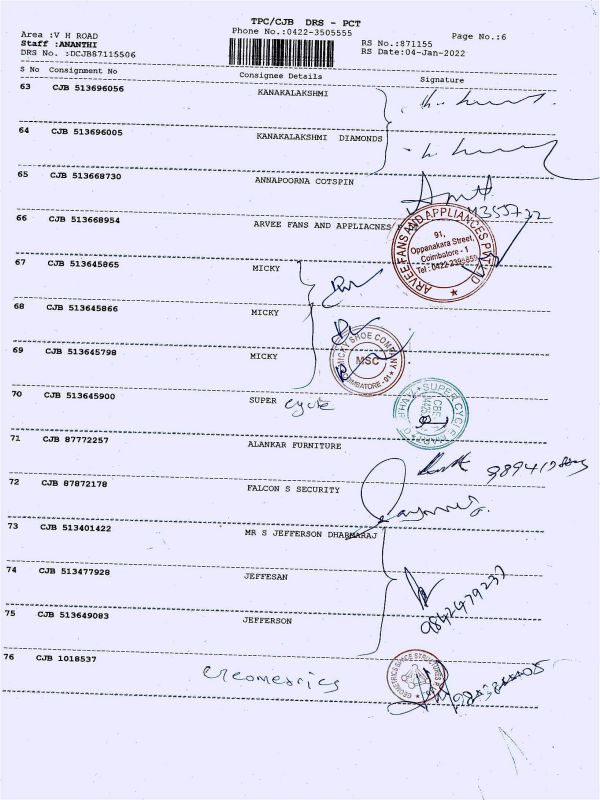 TPC/CJB DRS - PCT
Area :V H ROAD Phone No.:0422-3505555 Page No.:6
Staff :ANANTHI RS No.:871155
DRS No. :DCJB87115506 RS Date:04-Jan-2022
S No Consignment No Consignee Details Signature
63 CJB 513696056 KANAKALAKSHMI
64 CJB 513696005 KANAKALAKSHMI DIAMONDS
65 CJB 513668730 ANNAPOORNA COTSPIN
66 CJB 513668954 ARVEE FANS AND APPLIACNES
ARVEE FANS AND APPLIANCES
91,
Oppanakara Street,
Coimbatore - 1
67 CJB 513645865 MICKY
68 CJB 513645866 MICKY
69 CJB 513645798 MICKY
MICKY SHOE COMPANY
MSC
COIMBATORE - 01
70 CJB 513645900 SUPER cycle
SUPER CYCLE
71 CJB 87772257 ALANKAR FURNITURE
72 CJB 87872178 FALCON S SECURITY
73 CJB 513401422 MR S JEFFERSON DHARMARAJ
74 CJB 513477928 JEFFESAN
9842479237
75 CJB 513649083 JEFFERSON
76 CJB 1018537 Geometrics
GEOMETRICS SPACE STRUCTURES